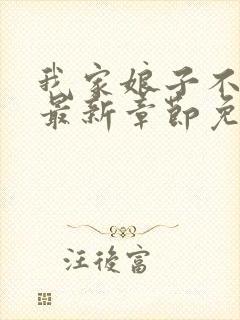 我家娘子不
最新章節免
汪後富